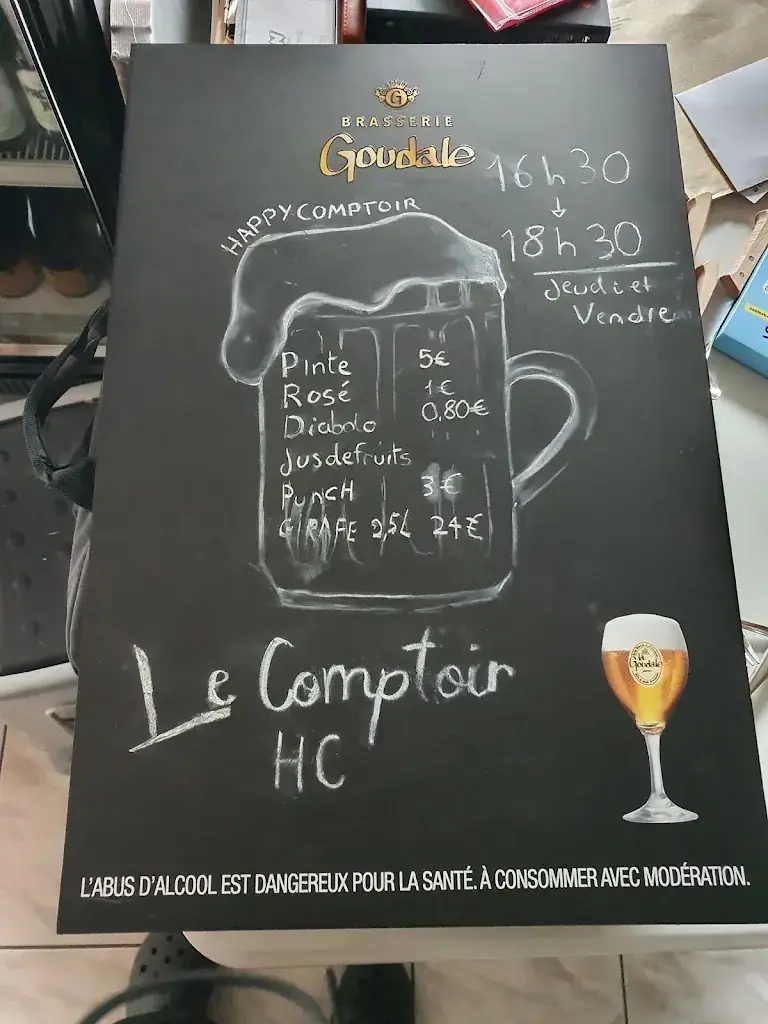 BRASSERIE
Goudale
16h30
↓
18h30
Jeudi et
Vendre
HAPPY COMPTOIR
Pinte 5€
Rosé 1€
Diabolo 0,80€
Jus de fruits
PuNCH 3€
GIRAFE 2,5L 24€
Le Comptoir
HC
la Goudale
L'ABUS D'ALCOOL EST DANGEREUX POUR LA SANTÉ. À CONSOMMER AVEC MODÉRATION.